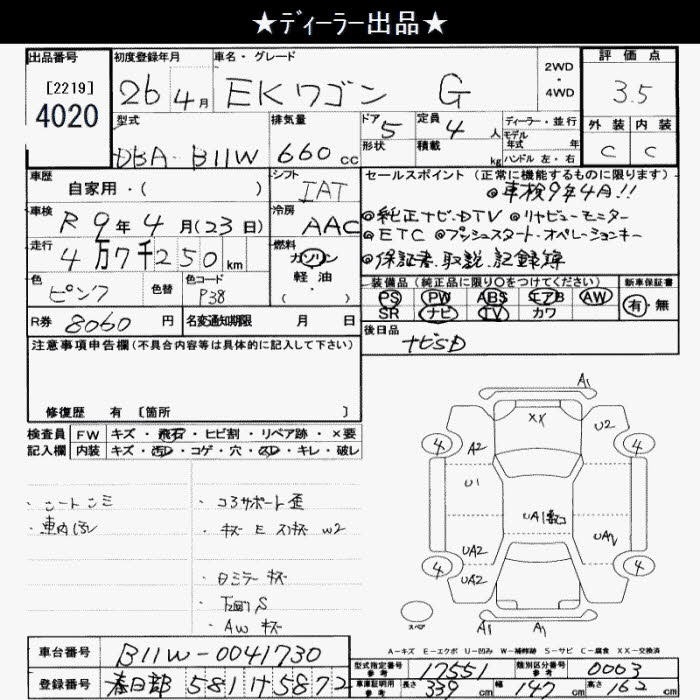 ★ディーラー出品★
出品番号
[2219]
4020
初度登録年月
26年4月
車名・グレード
EKワゴン G
2WD
・
4WD
評価点
3.5
外装 内装
C C
型式
DBA-B11W
排気量
660cc
ドア 5
形状
定員 4人
積載 kg
ディーラー・並行
モデル年式 年
ハンドル 左・右
車歴
自家用・( )
シフト
IAT
車検
R 9年4月(23日)
冷房
AAC
走行
4万7千250km
燃料
ガソリン
軽・油
( )
色
ピンク
色替
色コード
P38
R券 8060円
名変通知期限 月 日
セールスポイント(正常に機能するものに限ります)
◎車検9年4月!!
◎純正ナビ・DTV ◎リヤビューモニター
◎ETC ◎プッシュスタート・オペレーションキー
◎保証書、取説、記録簿
装備品(純正品に限り○をつけてください)
PS PW ABS エアB AW
SR ナビ TV カワ
新車保証書
有・無
後日品
ナビSD
注意事項申告欄(不具合内容等は具体的に記入して下さい)
修復歴 有 〔箇所 〕
検査員
記入欄
FW キズ・飛石・ヒビ割・リペア跡・×要
内装 キズ・汚れ・コゲ・穴・スレ・キレ・破レ
・シートシミ
・コアサポート歪
・キズ E スリキズ W2
・ロミラーキズ
・下回りS
・AWキズ
A1
XX
U2
4
4
A2
U1
UA1
UA2
UA2
4
4
スペア
A1
A1
A-キズ E-エクボ U-凹み W-補修跡 S-サビ C-腐食 XX-交換済
車台番号
B11W-0041730
登録番号
春日部 581 け 5872
型式指定番号
参考
17551
類別区分番号
参考
0003
車庫証明用
参考
長さ 339cm
幅 147cm
高さ 162cm